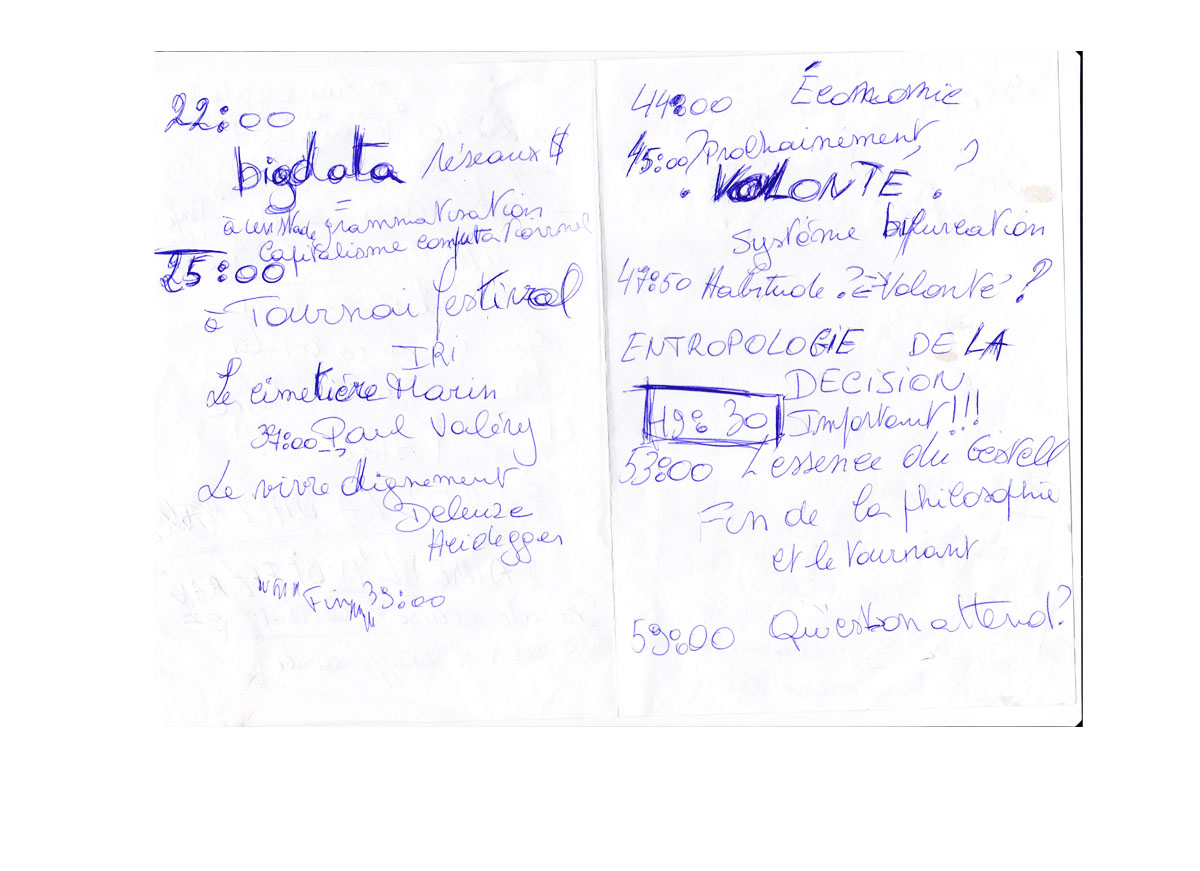 22:00
bigdata réseaux $
=
à un stade grammatisation
Capitalisme computationnel
25:00
à Tournai festival
IRI
Le cimetière Marin
37:00 Paul Valéry
Le vivre dignement
Deleuze
Heidegger
Fin 39:00
44:00 Économie
45:00 Prochainement
? VOLONTÉ ?
Système bifurcation
47:50 Habitude ?=Volonté ?
ENTROPOLOGIE DE LA
DECISION
49:30 Important!!!
53:00 L'essence du Gestell
Fin de la philosophie
et le tournant
59:00 Qu'est-on attend?